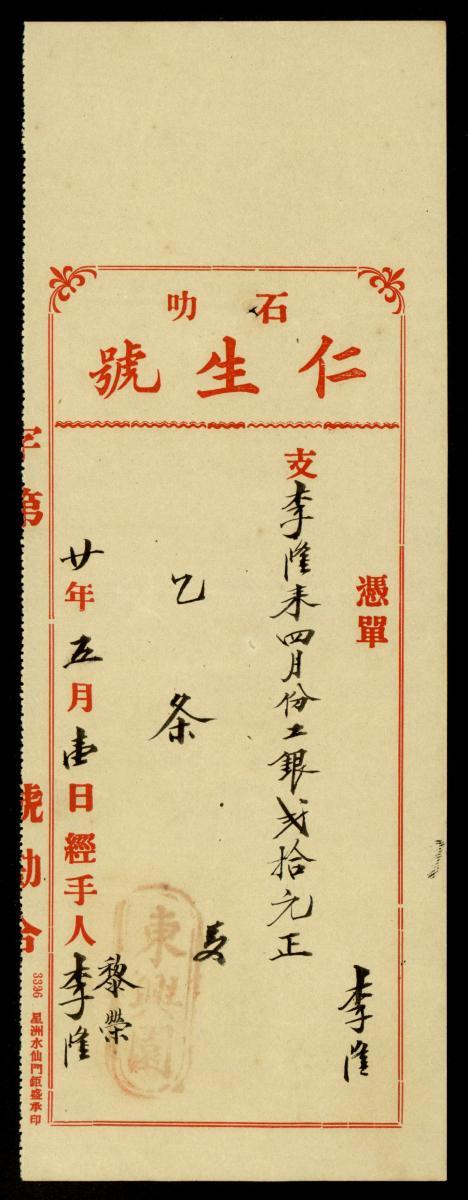 石叻
仁生號
憑單
李隆
支李隆来四月份工银弍拾元正
乙条
東興園
廿年五月壹日經手人黎榮李隆
字第 號勘合
3336 星洲水仙門鉅盛承印